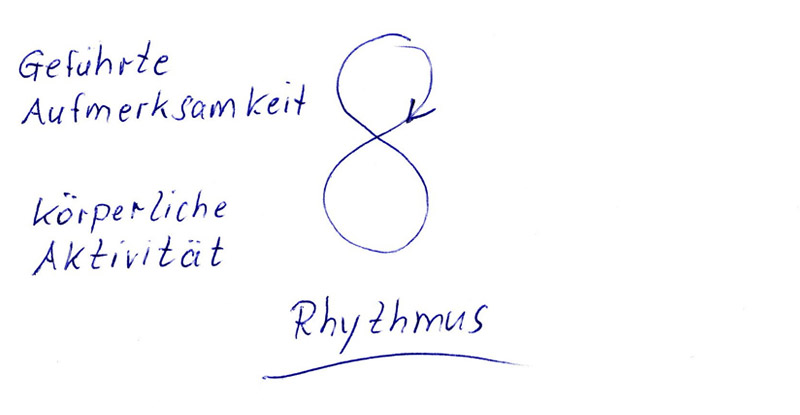 Geführte
Aufmerksamkeit
körperliche
Aktivität
Rhythmus